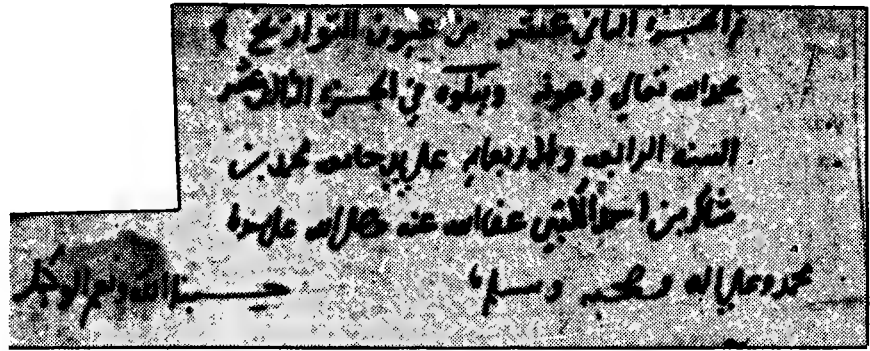 تم الجزء الثاني عشر من عيون التواريخ
بحمد الله تعالى وعونه ويتلوه في الجزء الثالث عشر
السنة الرابعه والاربعمايه على يد جامعه محمد بن
شاكر بن احمد الكتبي عفا الله عنه وصلى الله على سيدنا
محمد وعلى اله وصحبه وسلم حسبنا الله ونعم الوكيل